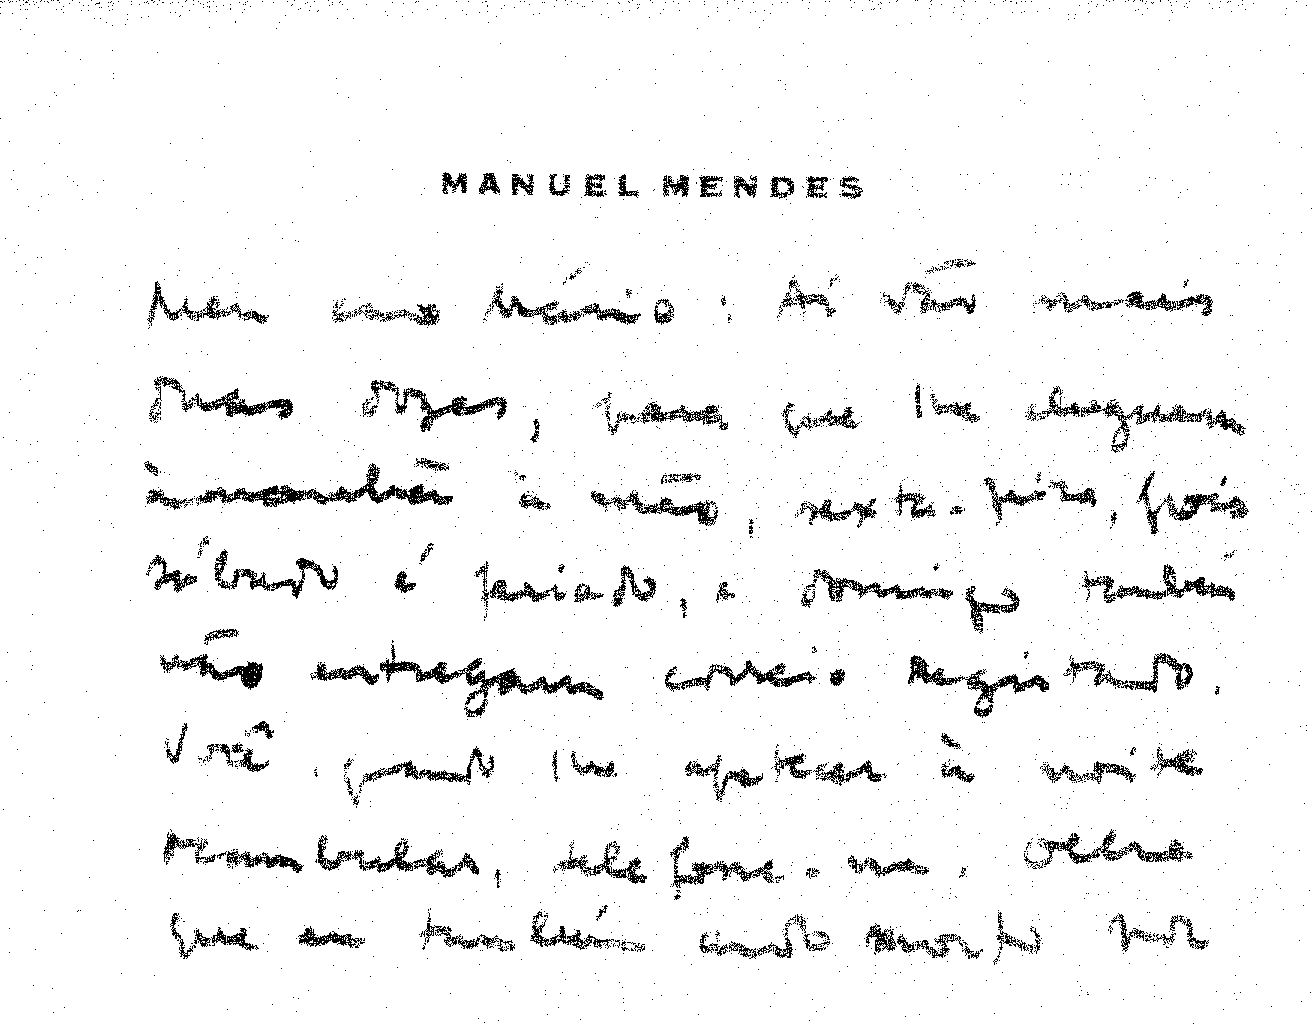 MANUEL MENDES
Meu caro Mário: Aí vão mais
duas doses, para que lhe cheguem
à mão, sexta-feira, pois
sábado é feriado, e domingo também
não entregam correio registado.
Você, quando lhe apetecer à noite
telefone-me. Olhe
que eu também ando morto por